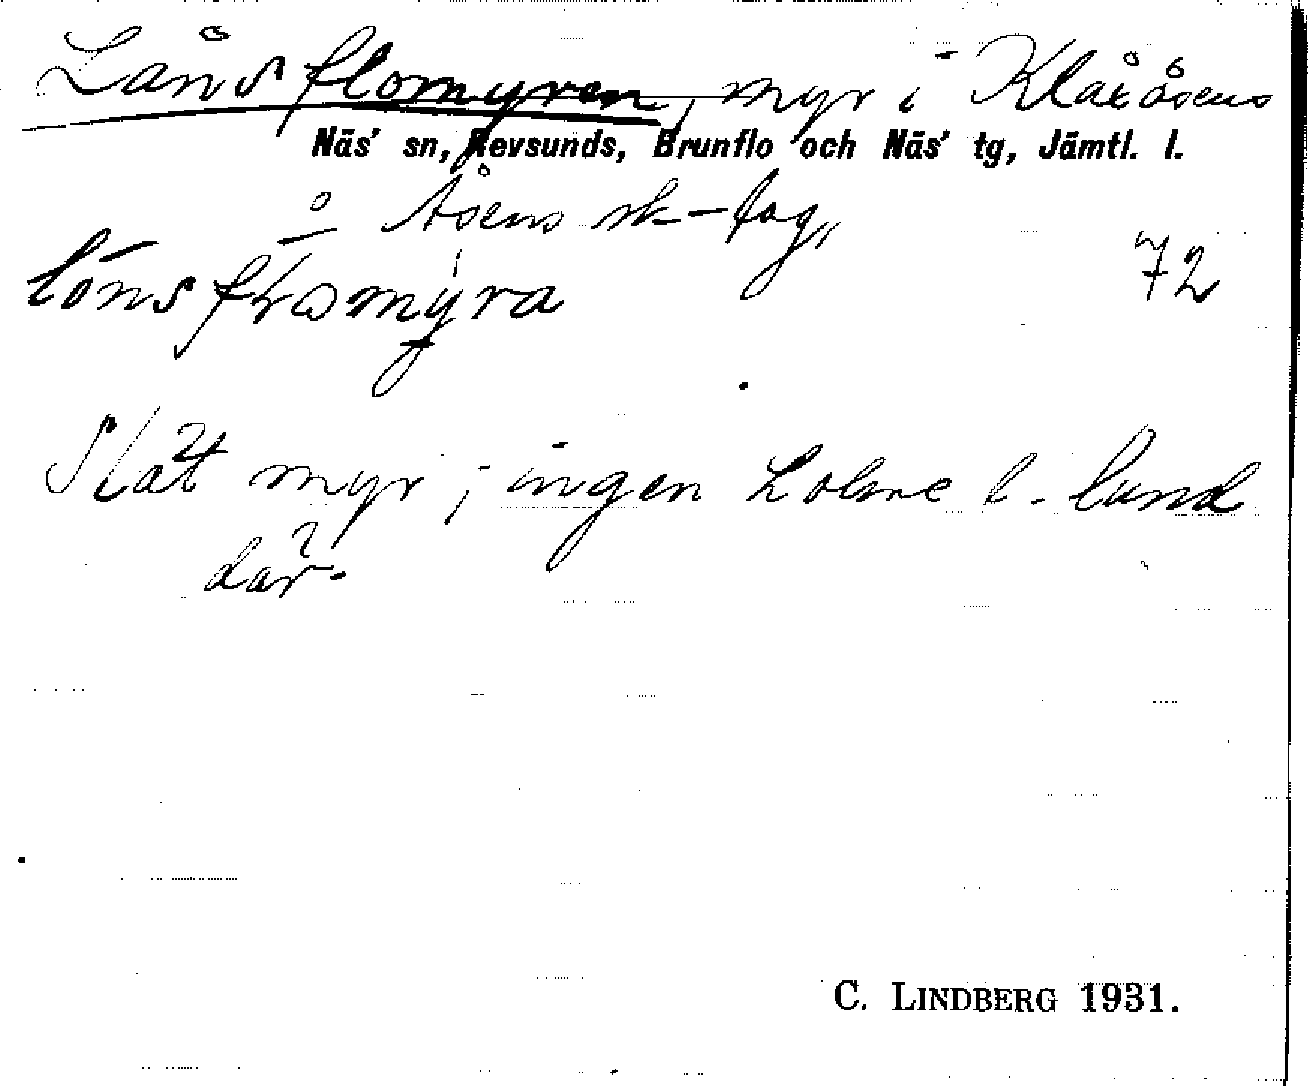 Lånsflomyren, myr i Klaxåsens
Näs' sn, Revsunds, Brunflo och Näs' tg, Jämtl. l.
o Åsens sk-lag
72
Slät myr; ingen holme l. lund
där.
C. LINDBERG 1931.